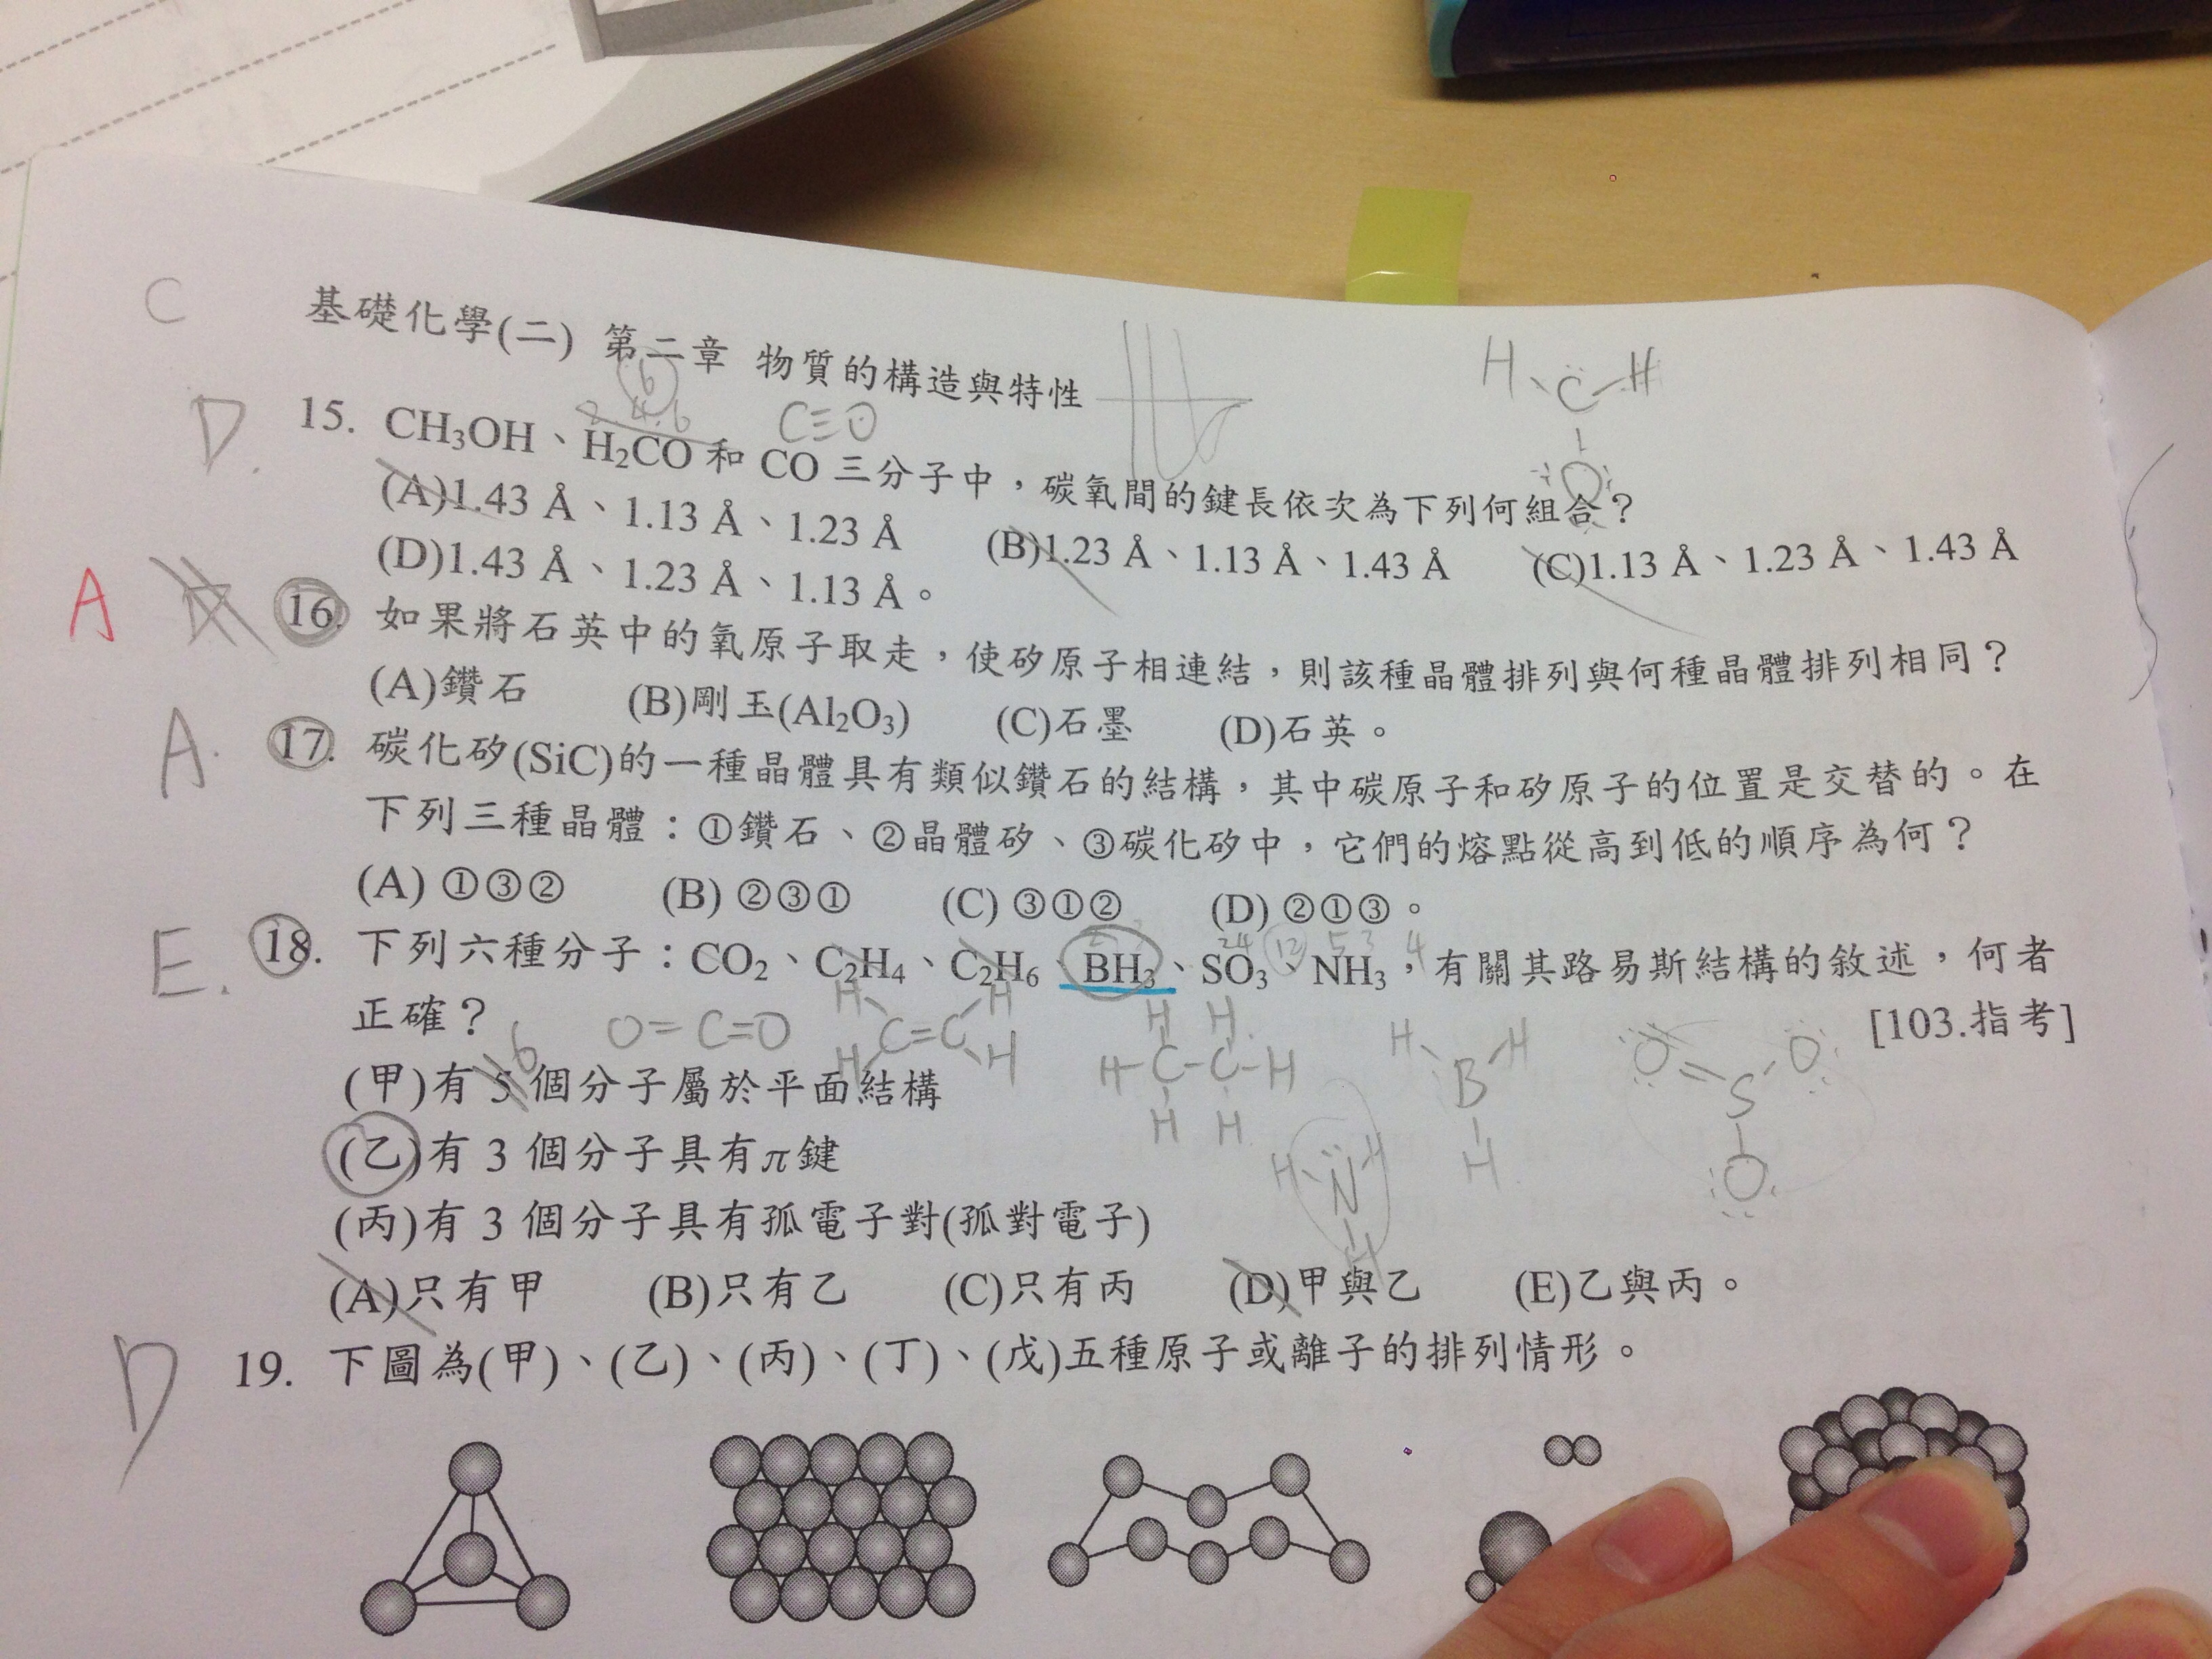 C
基礎化學(二) 第二章 物質的構造與特性
H C H
O
6
2 4 6
C≡O
D. 15. CH₃OH、H₂CO 和 CO 三分子中，碳氧間的鍵長依次為下列何組合？
(A)1.43 Å、1.13 Å、1.23 Å (B)1.23 Å、1.13 Å、1.43 Å (C)1.13 Å、1.23 Å、1.43 Å
(D)1.43 Å、1.23 Å、1.13 Å。
A 16. 如果將石英中的氧原子取走，使矽原子相連結，則該種晶體排列與何種晶體排列相同？
(A)鑽石 (B)剛玉(Al₂O₃) (C)石墨 (D)石英。
A. 17. 碳化矽(SiC)的一種晶體具有類似鑽石的結構，其中碳原子和矽原子的位置是交替的。在
下列三種晶體：①鑽石、②晶體矽、③碳化矽中，它們的熔點從高到低的順序為何？
(A) ①③② (B) ②③① (C) ③①② (D) ②①③。
24 12 5 3 4
E. 18. 下列六種分子：CO₂、C₂H₄、C₂H₆、BH₃、SO₃、NH₃，有關其路易斯結構的敘述，何者
正確？ [103.指考]
O=C=O
H H
C=C
H H
H H
H-C-C-H
H H
H H
B
H
O=S-O
O
H N H
H
6
(甲)有 5 個分子屬於平面結構
(乙)有 3 個分子具有π鍵
(丙)有 3 個分子具有孤電子對(孤對電子)
(A)只有甲 (B)只有乙 (C)只有丙 (D)甲與乙 (E)乙與丙。
D 19. 下圖為(甲)、(乙)、(丙)、(丁)、(戊)五種原子或離子的排列情形。